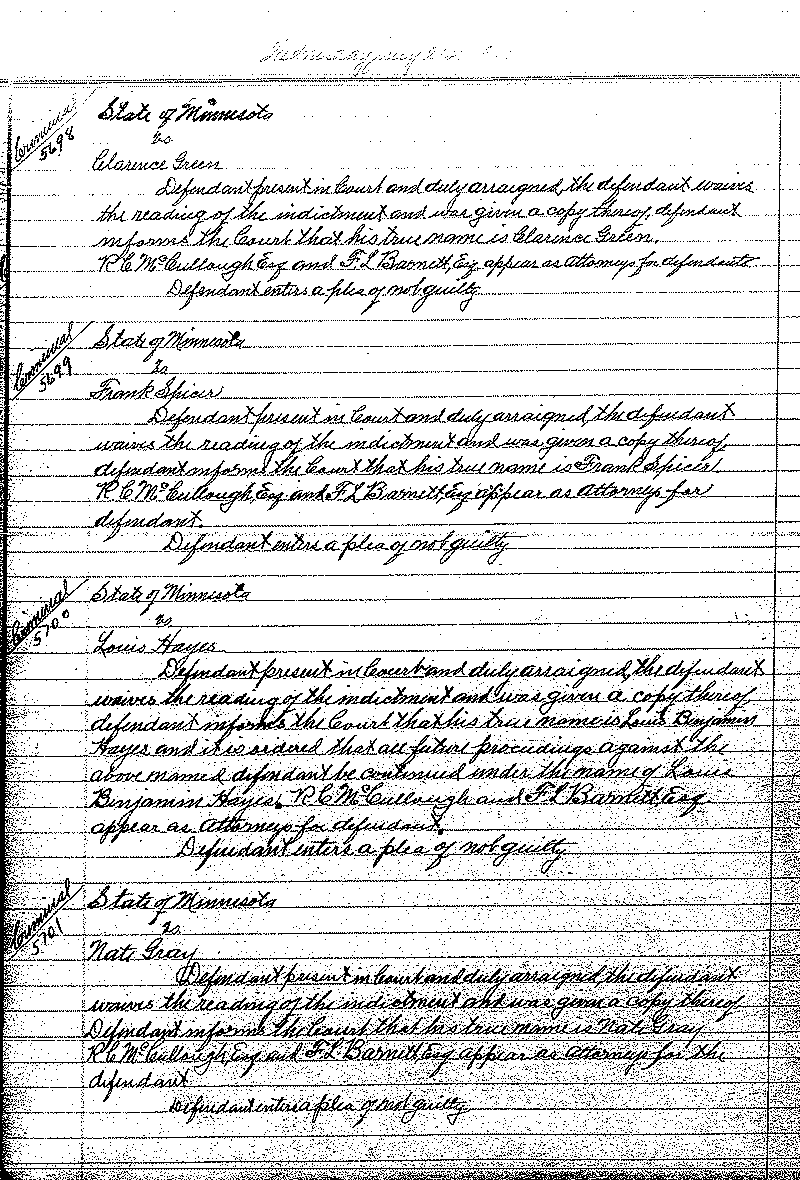 Wednesday
Criminal
5698
State of Minnesota
vs
Clarence Green
Defendant present in Court and duly arraigned, the defendant waives
the reading of the indictment and was given a copy thereof, defendant
informs the Court that his true name is Clarence Green.
R C McCullough Esq and F L Barnett, Esq appear as attorneys for defendant
Defendant enters a plea of not guilty
Criminal
5699
State of Minnesota
vs
Frank Spicer
Defendant present in Court and duly arraigned, the defendant
waives the reading of the indictment and was given a copy thereof,
defendant informs the Court that his true name is Frank Spicer,
R C McCullough, Esq and F L Barnett, Esq appear as attorneys for
defendant.
Defendant enters a plea of not guilty
Criminal
5700
State of Minnesota
vs
Louis Hayes
Defendant present in Court and duly arraigned, the defendant
waives the reading of the indictment and was given a copy thereof,
defendant informs the Court that his true name is Louis Benjamin
Hayes and it is ordered that all future proceedings against the
above named defendant be continued under the name of Louis
Benjamin Hayes, R C McCullough and F L Barnett, Esq
appear as attorneys for defendant.
Defendant enters a plea of not guilty
Criminal
5701
State of Minnesota
vs
Nate Gray
Defendant present in Court and duly arraigned, the defendant
waives the reading of the indictment and was given a copy thereof
Defendant informs the Court that his true name is Nate Gray
R C McCullough Esq and F. L. Barnett Esq appear as attorneys for the
defendant
Defendant enters a plea of not guilty